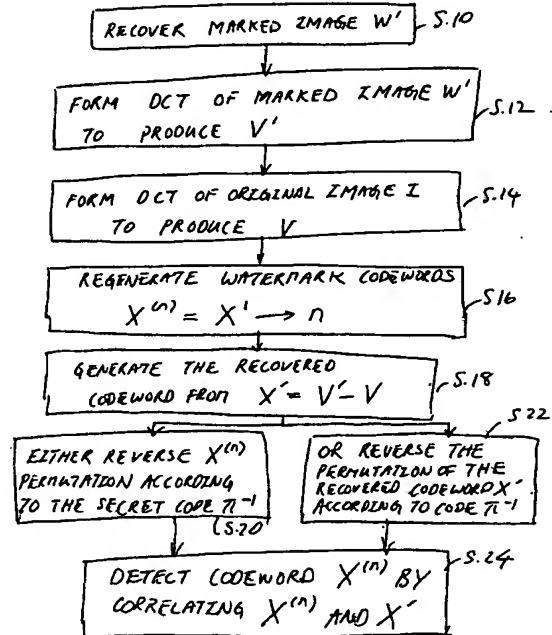 RECOVER MARKED IMAGE W'
S.10
FORM DCT OF MARKED IMAGE W'
TO PRODUCE V'
S.12
FORM DCT OF ORIGINAL IMAGE I
TO PRODUCE V
S.14
REGENERATE WATERMARK CODEWORDS
X^(n) = X^1 → n
S16
GENERATE THE RECOVERED
CODEWORD FROM X' = V' - V
S.18
EITHER REVERSE X^(n)
PERMUTATION ACCORDING
TO THE SECRET CODE π^-1
S.20
S.22
OR REVERSE THE
PERMUTATION OF THE
RECOVERED CODEWORD X'
ACCORDING TO CODE π^-1
S.24
DETECT CODEWORD X^(n) BY
CORRELATING X^(n) AND X'